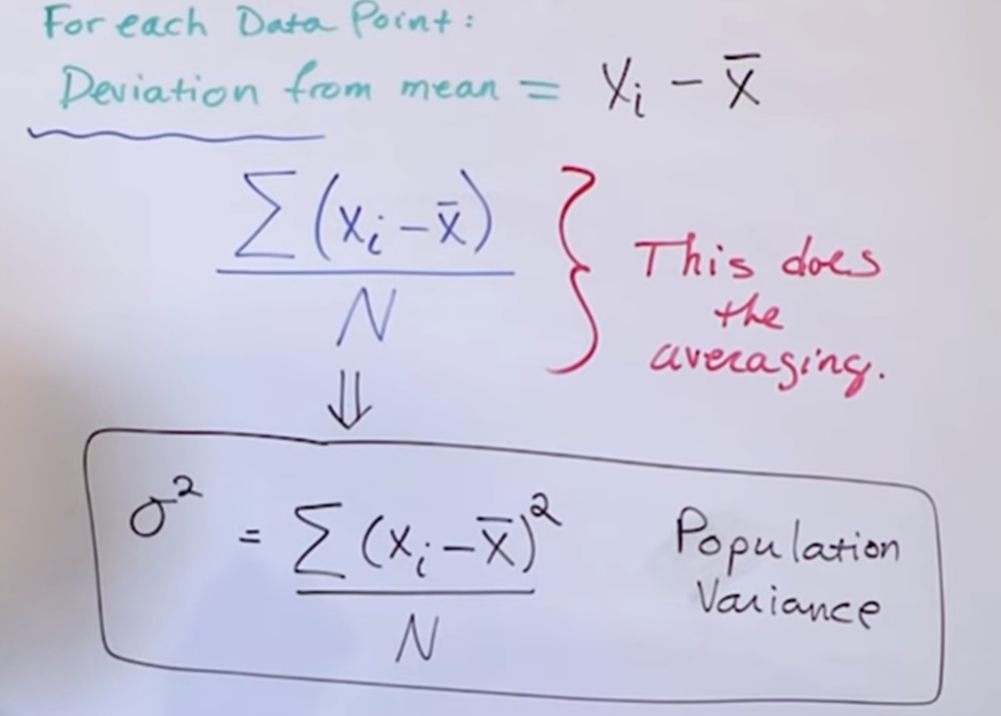 For each Data Point:
Deviation from mean = Xi − x̄
∑(xi − x̄)
N
This does
the
averaging.
⇓
σ² = ∑(xi − x̄)²
N
Population
Variance